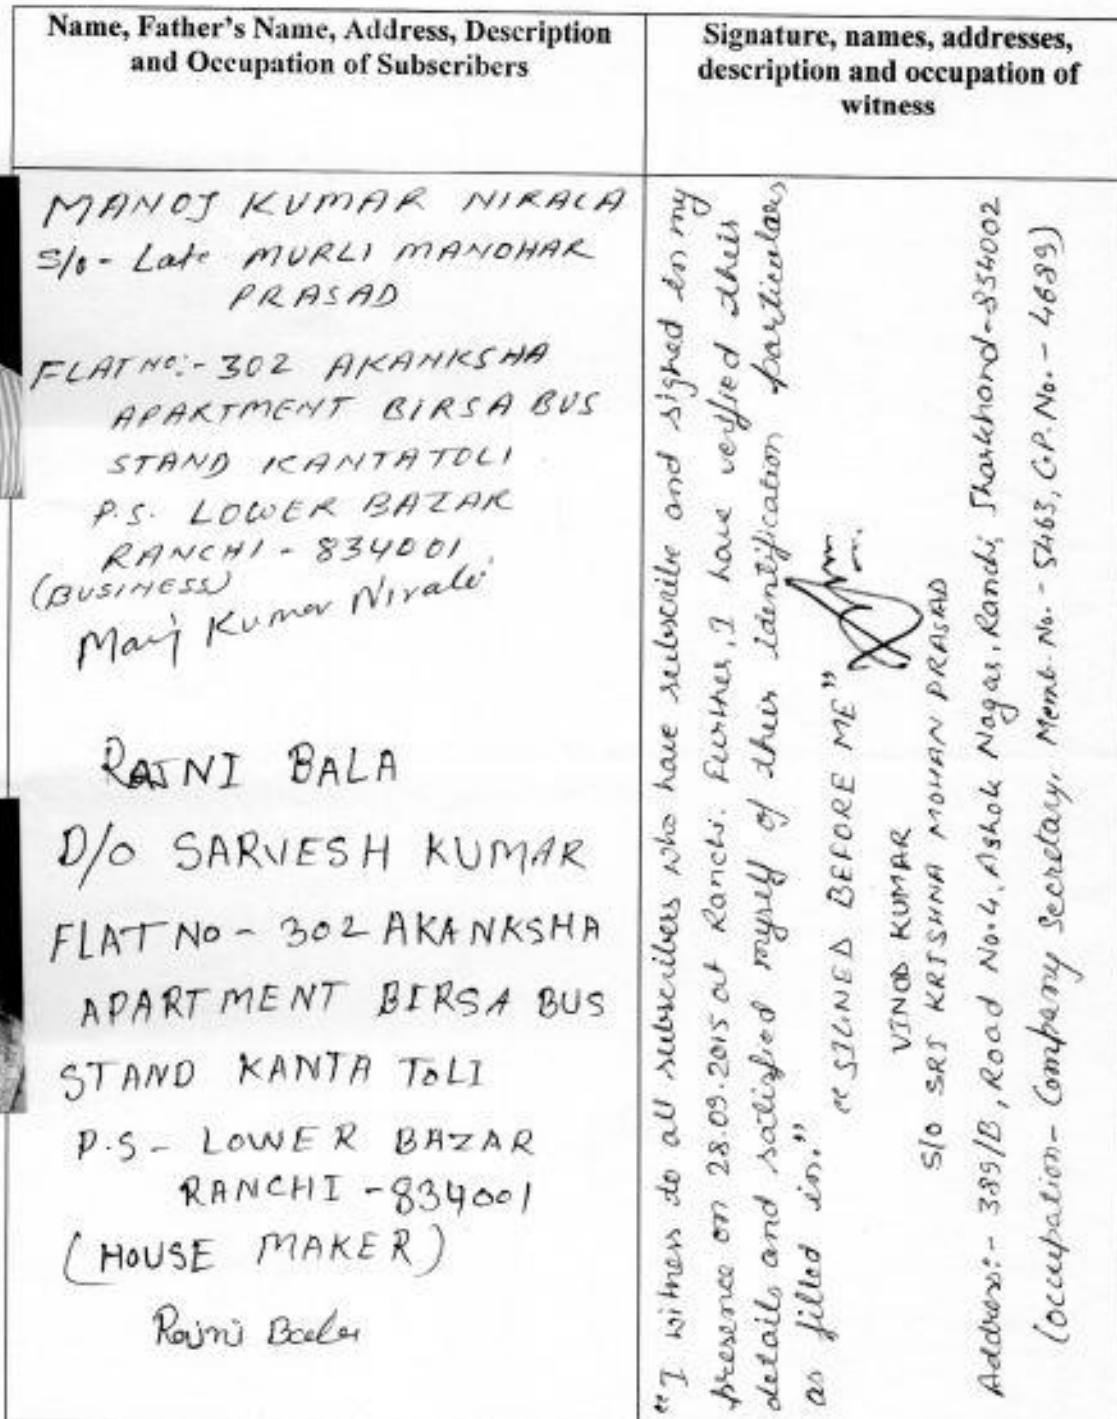 Name, Father's Name, Address, Description
and Occupation of Subscribers
Signature, names, addresses,
description and occupation of
witness
MANOJ KUMAR NIRALA
S/o - Late MURLI MANOHAR
PRASAD
FLAT NO:- 302 AKANKSHA
APARTMENT BIRSA BUS
STAND KANTATOLI
P.S. LOWER BAZAR
RANCHI - 834001
(BUSINESS)
Manoj Kumar Nirala
RAJNI BALA
D/O SARVESH KUMAR
FLAT NO - 302 AKANKSHA
APARTMENT BIRSA BUS
STAND KANTA TOLI
P.S - LOWER BAZAR
RANCHI - 834001
(HOUSE MAKER)
Rajni Bala
"I witness to all subscribers who have subscribe and signed in my
presence on 28.09.2015 at Ranchi. Further, I have verified their
details and satisfied myself of their identification particulars
as filled in."
"SIGNED BEFORE ME"
VINOD KUMAR
S/o SRI KRISHNA MOHAN PRASAD
Address:- 389/B, Road No.4, Ashok Nagar, Ranchi, Jharkhand-834002
(Occupation- Company Secretary, Memb. No. - 5463, C.P. No. - 4689)